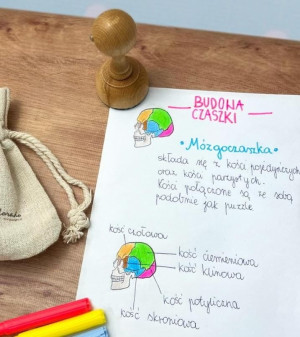 BUDOWA
CZASZKI
• Mózgoczaszka •
składa się z kości pojedynczych
oraz kości parzystych.
Kości połączone są ze sobą
podobnie jak puzzle.
kość czołowa
kość ciemieniowa
kość klinowa
kość potyliczna
kość skroniowa